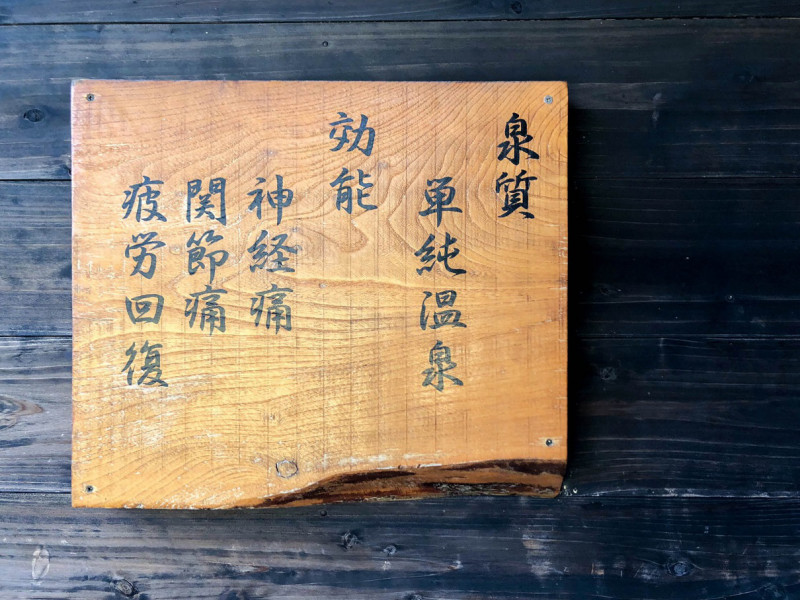 泉質
単純温泉
効能
神経痛
関節痛
疲労回復